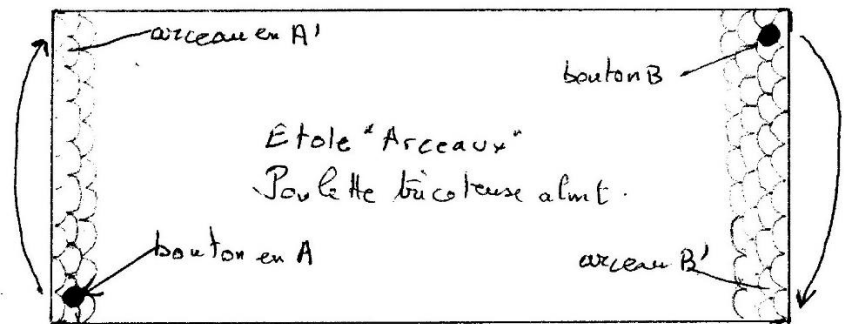 arceau en A'
bouton B
Etole "Arceaux"
Poulette tricoteuse
bouton en A
arceau B'